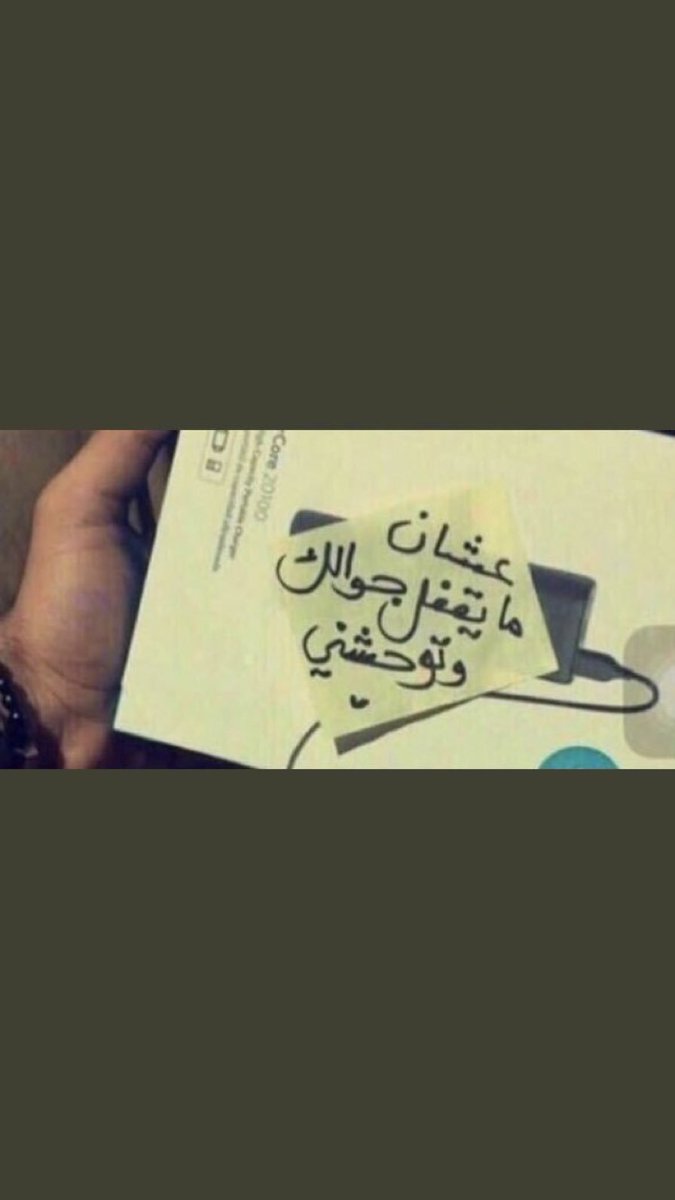 عشان
ما يقفل جوالك
وتوحشني
Core 20100